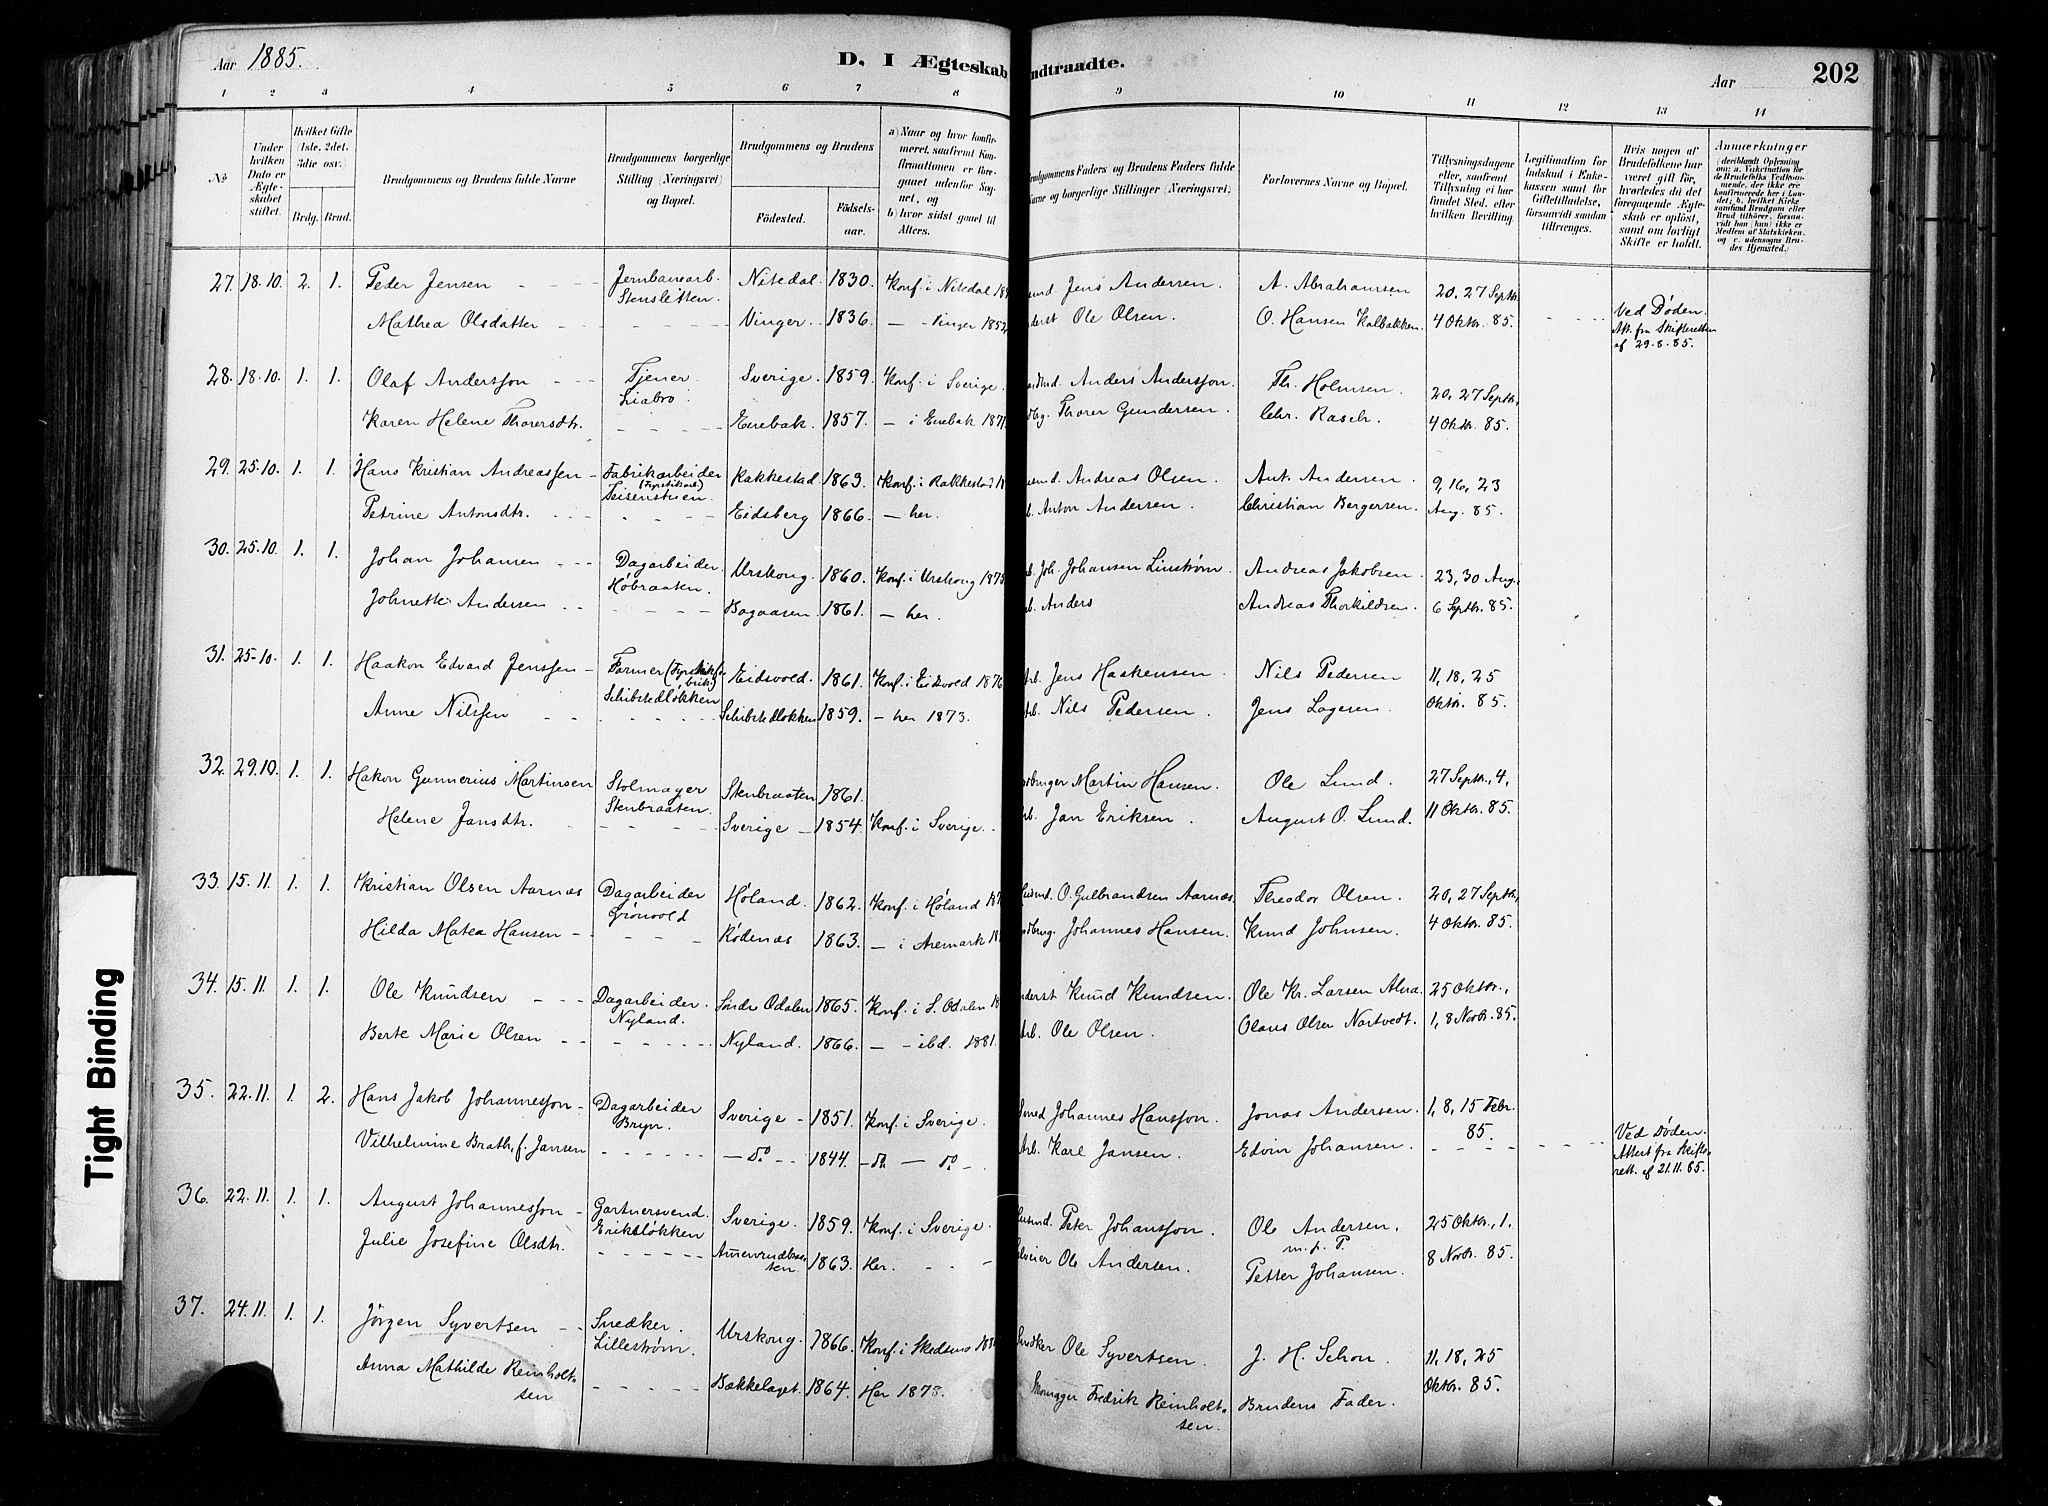 Aar 1885.
D. I Ægteskab
indtraadte.
Aar
202
1 2 3 4 5 6 7 8 9 10 11 12 13 14
No
Under hvilken Dato er Ægteskabet stiftet.
Hvilket Gifte (1ste, 2det, 3die osv.)
Brdg. Brud.
Brudgommens og Brudens fulde Navne
Brudgommens borgerlige Stilling (Næringsvei) og Bopæl.
Brudgommens og Brudens
Fødested.
Fødselsaar.
a) Naar og hvor konfirmeret, saafremt Konfirmationen er foregaaet udenfor Sognet, og
b) hvor sidst gaaet til Alters.
Brudgommens Faders og Brudens Faders fulde Navne og borgerlige Stillinger (Næringsvei).
Forlovernes Navne og Bopæl.
Tillysningsdagene eller, saafremt Tillysning ei har fundet Sted, efter hvilken Bevilling.
Legitimation for Indskud i Enkekassen samt for Giftetilladelse, forsaavidt saadan tiltrænges.
Hvis nogen af Brudefolkene har været gift før, hvorledes da det foregaaende Ægteskab er opløst, samt om lovligt Skifte er holdt.
Anmærkninger
(deriblandt Oplysning om: a. Vaccination for de Brudefolks Vedkommende, der ikke ere konfirmerede her i Landet; b. hvilket Kirkesamfund Brudgom eller Brud tilhører, forsaavidt han (hun) ikke er Medlem af Statskirken, og c. udensogns Brudes Hjemsted.)
27. 18.10. 2. 1. Peder Jensen Jernbanearb. Stensletten. Nitedal 1830. Konf. i Nitedal Jens Andersen. A. Abrahamsen 20, 27 Septbr.
Mathea Olsdatter Vinger. 1836. — Vinger 1852 Ole Olsen. O. Hansen Kalbakken. 4 Oktbr. 85. Ved Døden. Att. fra Skifteretten af 29.8.85.
28. 18.10. 1. 1. Olaf Andersson Tjener. Liabro. Sverige. 1859. Konf. i Sverige. Anders Andersson. Th. Holmsen. 20, 27 Septbr.,
Karen Helene Thorersdtr. Enebak. 1857. — i Enebak 1871. Thorer Gundersen. Chr. Rasch. 4 Oktbr. 85.
29. 25.10. 1. 1. Hans Kristian Andreassen Fabrikarbeider (Fyrstikarb) Teisenstuen. Rakkestad 1863. Konf. i Rakkestad Andreas Olsen. Ant. Andersen. 9, 16, 23
Petrine Antonsdtr. Eidsberg 1866. — her. Anton Andersen. Christian Bergersen. Aug. 85.
30. 25.10. 1. 1. Johan Johansen Dagarbeider. Høbraaten. Urskoug. 1860. Konf. i Urskoug 1875 Joh. Johansen Linstrøm. Andreas Jakobsen. 23, 30 Aug.,
Johnette Andersen Bogaasen 1861. — her. Anders Andreas Thorkildsen. 6 Septbr. 85.
31. 25.10. 1. 1. Haakon Edvard Jenssen Former (Fyrstikfabrik) Schibstedløkken Eidsvold. 1861. Konf. i Eidsvold 1876 Arb. Jens Haakensen. Nils Pedersen 11, 18, 25
Anne Nilssen Schibstedløkken 1859. — her 1873. Arb. Nils Pedersen. Jens Lagesen. Oktbr. 85.
32. 29.10. 1. 1. Hakon Gunnerius Martinsen Stolmager Stenbraaten. Stenbraaten 1861. Martin Hansen. Ole Lund. 27 Septbr., 4,
Helene Jansdtr. Sverige 1854. Konf. i Sverige. Jan Eriksen. August O. Lund. 11 Oktbr. 85.
33. 15.11. 1. 1. Kristian Olsen Aarnæs Dagarbeider Grönvold Høland. 1862. Konf. i Høland O. Gulbrandsen Aarnæs. Theodor Olsen. 20, 27 Septbr.,
Hilda Matea Hansen Rødenæs 1863. — i Aremark Johannes Hansen. Knud Johnsen. 4 Oktbr. 85.
34. 15.11. 1. 1. Ole Knudsen Dagarbeider. Nyland. Søndre Odalen 1865. Konf. i S. Odalen Knud Knudsen. Ole Kr. Larsen Alna. 25 Oktbr.,
Berte Marie Olsen Nyland. 1866. — ibd. 1881. Arb. Ole Olsen. Olaus Olsen Nortvedt. 1, 8 Novbr. 85.
35. 22.11. 1. 2. Hans Jakob Johannesson Dagarbeider Bryn. Sverige 1851. Konf. i Sverige. Smed Johannes Hansson. Jonas Andersen. 1, 8, 15 Febr. 85.
Vilhelmine Brath, f. Jansen — Do 1844. — do — do Arb. Karl Jansen. Edvin Johansen. Ved Døden. Attest fra Skifterett. af 21.11.85.
36. 22.11. 1. 1. August Johannesson Gartnersvend. Eriksløkken Sverige. 1859. Konf. i Sverige. Peter Johansson. Ole Andersen. m. p. P. 25 Oktbr., 1.
Julie Josefine Olsdtr. 1863. Her. Ole Andersen. Petter Johansen. 8 Novbr. 85.
37. 24.11. 1. 1. Jörgen Syvertsen Snedker. Lillestrøm. Urskoug. 1866. Konf. i Skedsmo Snedker Ole Syvertsen. J. H. Schou. 11, 18, 25
Anna Mathilde Reinholtsen Bækkelaget. 1864. Her 1878. Fredrik Reinholtsen. Brudens Fader. Oktbr. 85.
Tight Binding